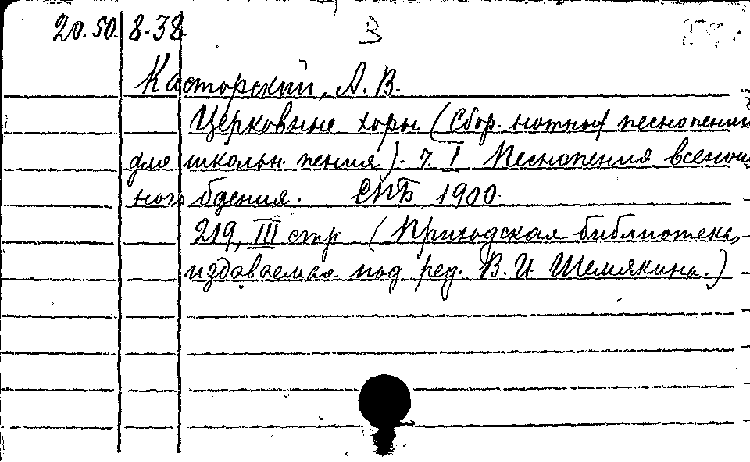 20.50 8-38 3
Касторский, А. В.
Церковные хоры (Сбор. нотных песнопений
для школьн пения). ч. I Песнопения всенощ
ного бдения. СПБ 1900.
219, III стр (Приходская библиотека,
издаваемая под ред. В. И Шемякина.)